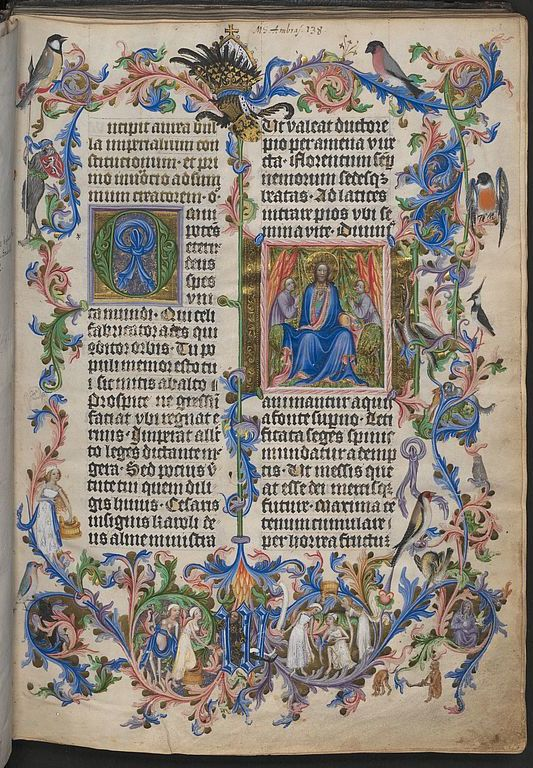 Ms Ambras. 138
ncipit aurea bul
la imperialium con
stitucionum · et pri
mo inuocio ad sum
mum creatorem · O
mni
potes
eterne
deus
spes
vni
ca mundi · Qui celi
fabricator ades qui
conditor orbis · Tu po
puli memor esto tui
sic mitis ab alto
Prospice ne gressum
faciat vbi regnat e
rinis · Imperat alle
cto leges dictante me
gera · Sed pocius v
tute tui quem dili
gis huius · Cesaris
insignis karoli de
us alme ministra
Ut valeat ductore
pio per amena vire
cta · Florentum sep
nemorum sedesqz
beatas · Ad latices
intrare pios vbi se
mina vite · Diuinis
animantur aquis
a fonte superno · Leti
ficata seges spinis
mundatur ademp
tis · Ut messis que
at esse dei mercisqz
future · Maxima ce
tenum cumulare
per horrea fructum